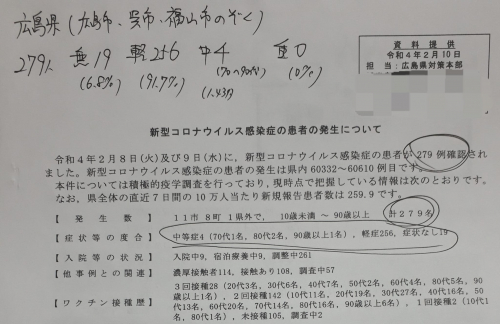 広島県(広島市、呉市、福山市のぞく)
279人 無19 軽256 中4 重0
(6.8%) (91.7%) (70〜90代) (0%)
(1.43%)
資料提供
令和4年2月10日
担当:広島県対策本部
新型コロナウイルス感染症の患者の発生について
令和4年2月8日(火)及び9日(水)に、新型コロナウイルス感染症の患者が279例確認され
ました。新型コロナウイルス感染症の患者の発生は県内60332〜60610例目です。
本件については積極的疫学調査を行っており、現時点で把握している情報は次のとおりです。
なお、県全体の直近7日間の10万人当たり新規報告患者数は259.9です。
【発生数】 11市8町1県外で、10歳未満〜90歳以上 計279名
【症状等の度合】 中等症4(70代1名、80代2名、90歳以上1名)、軽症256、症状なし19
【入院等の状況】 入院中9、宿泊療養中9、調整中261
【他事例との関連】 濃厚接触者114、接触あり108、調査中57
【ワクチン接種歴】 3回接種28(20代3名、30代6名、40代7名、50代2名、60代4名、80代5名、90
歳以上1名)、2回接種142(10代11名、20代19名、30代27名、40代16名、50
代13名、60代20名、70代14名、80代16名、90歳以上6名)、1回接種2(10代
1名、80代1名)、未接種105、調査中2